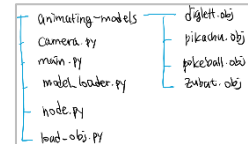 animating-models
camera.py
main.py
model_loader.py
node.py
load_obj.py
diglett.obj
pikachu.obj
pokeball.obj
zubat.obj